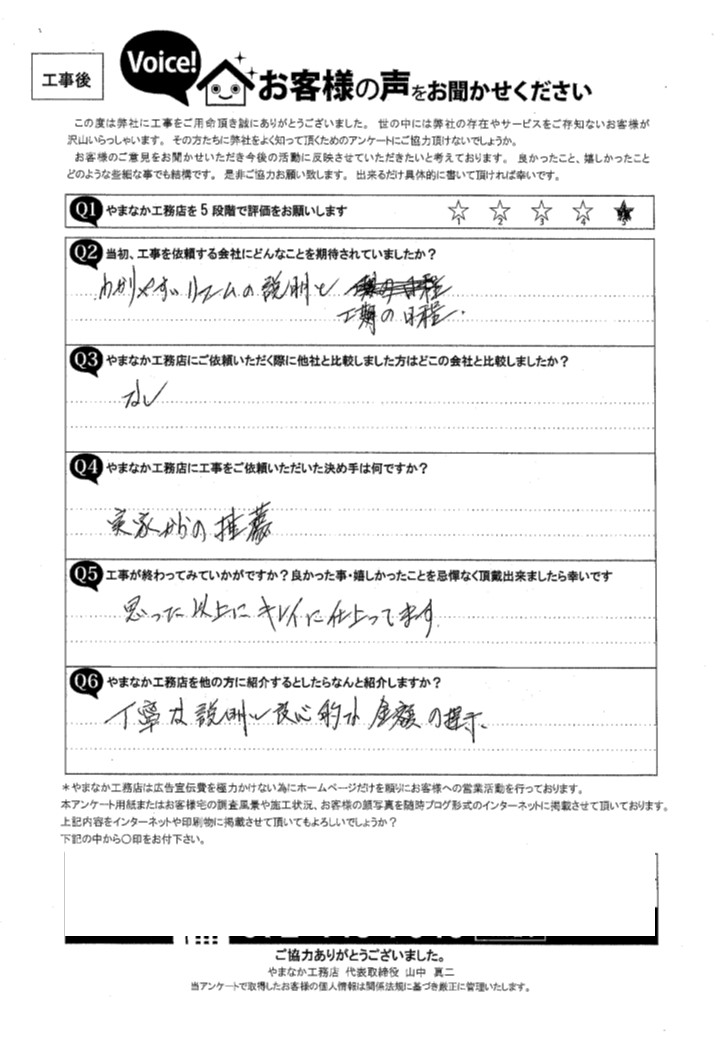 工事後
Voice!
お客様の声をお聞かせください
この度は弊社に工事をご用命頂き誠にありがとうございました。 世の中には弊社の存在やサービスをご存知ないお客様が
沢山いらっしゃいます。 その方たちに弊社をよく知って頂くためのアンケートにご協力頂けないでしょうか。
お客様のご意見をお聞かせいただき今後の活動に反映させていただきたいと考えております。 良かったこと、嬉しかったこと
どのような些細な事でも結構です。 是非ご協力お願い致します。 出来るだけ具体的に書いて頂ければ幸いです。
Q1 やまなか工務店を5段階で評価をお願いします
1 2 3 4 5
Q2 当初、工事を依頼する会社にどんなことを期待されていましたか？
わかりやすいリフォームの説明と
工期の日程.
Q3 やまなか工務店にご依頼いただく際に他社と比較しました方はどこの会社と比較しましたか？
なし
Q4 やまなか工務店に工事をご依頼いただいた決め手は何ですか？
実家からの推薦
Q5 工事が終わってみていかがですか？良かった事・嬉しかったことを忌憚なく頂戴出来ましたら幸いです
思った以上にキレイに仕上ってます
Q6 やまなか工務店を他の方に紹介するとしたらなんと紹介しますか？
丁寧な説明と良心的な金額の提示、
＊やまなか工務店は広告宣伝費を極力かけない為にホームページだけを頼りにお客様への営業活動を行っております。
本アンケート用紙またはお客様宅の調査風景や施工状況、お客様の顔写真を随時ブログ形式のインターネットに掲載させて頂いております。
上記内容をインターネットや印刷物に掲載させて頂いてもよろしいでしょうか？
下記の中から〇印をお付下さい。
ご協力ありがとうございました。
やまなか工務店 代表取締役 山中 真二
当アンケートで取得したお客様の個人情報は関係法規に基づき厳正に管理いたします。